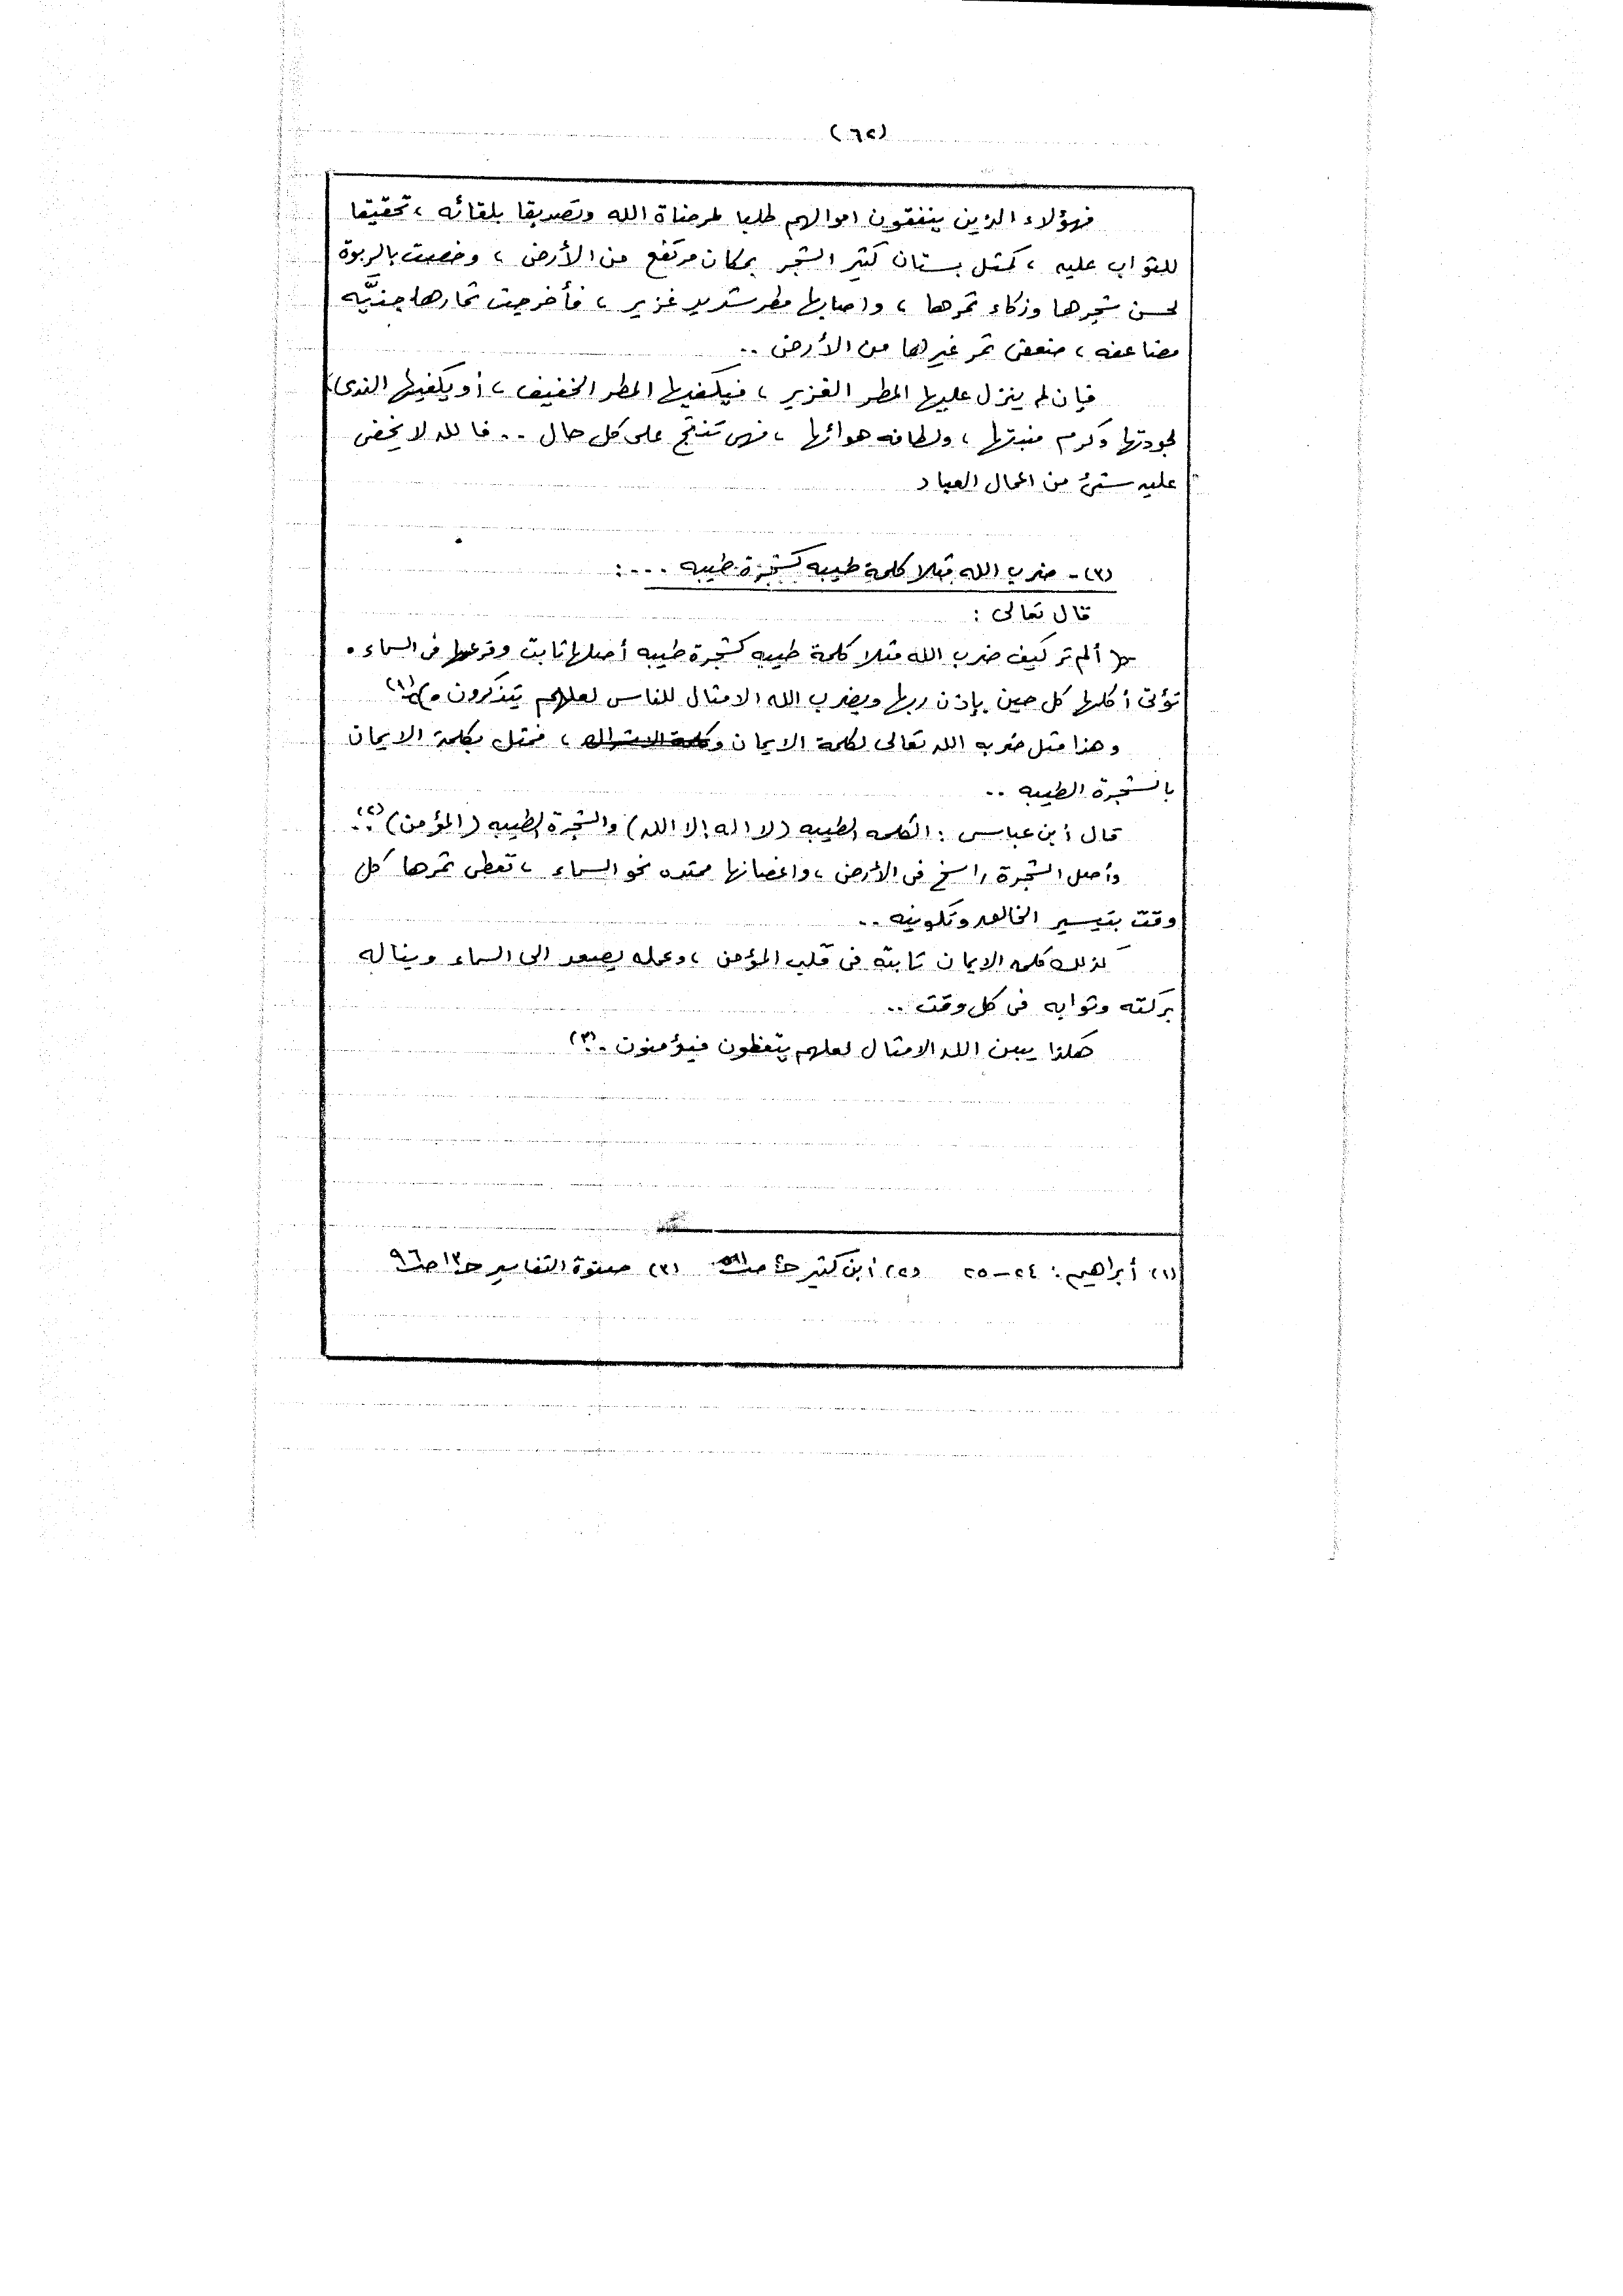 (٦٢)
فهؤلاء الذين ينفقون اموالهم طلبا لمرضاة الله وتصديقا بلقائه ، تحقيقا
للثواب عليه ، كمثل بستان كثير الشجر بمكان مرتفع من الأرض ، وخصت بالربوة
لحسن شجرها وزكاء ثمرها ، واصابها مطر شديد غزير ، فأخرجت ثمارها جنيَّه
مضاعفه ، ضعفى ثمر غيرها من الأرض ..
فإن لم ينزل عليها المطر الغزير ، فيكفيها المطر الخفيف ، أو يكفيها الندى ،
لجودتها وكرم منبتها ، ولطافه هوائها ، فهى تنتج على كل حال .. فالله لا يخفى
عليه شئ من اعمال العباد
(٣) - ضرب الله مثلا كلمة طيبه كشجرة طيبه ... :
قال تعالى :
﴿ ألم تر كيف ضرب الله مثلا كلمة طيبه كشجرة طيبه أصلها ثابت وفرعها فى السماء .
تؤتى أكلها كل حين بإذن ربها ويضرب الله الامثال للناس لعلهم يتذكرون . ﴾ (١)
وهذا مثل ضربه الله تعالى لكلمة الايمان وكلمة الاشراك ، فمثل بكلمة الايمان
بالشجرة الطيبه ..
قال أبن عباس : الكلمه الطيبه (لا اله إلا الله) والشجرة الطيبه (المؤمن) (٢) ..
وأصل الشجرة راسخ فى الأرض ، واغصانها ممتده نحو السماء ، تعطى ثمرها كل
وقت بتيسير الخالق وتكوينه ..
كذلك كلمه الايمان ثابته فى قلب المؤمن ، وعمله يصعد الى السماء ويناله
بركته وثوابه فى كل وقت ..
هكذا يبين الله الامثال لعلهم يتعظون فيؤمنون . (٣)
(١) أبراهيم : ٢٤ - ٢٥ (٢) أبن كثير حـ٤ صـ (٣) صفوة التفاسير حـ١٣ صـ٩٦